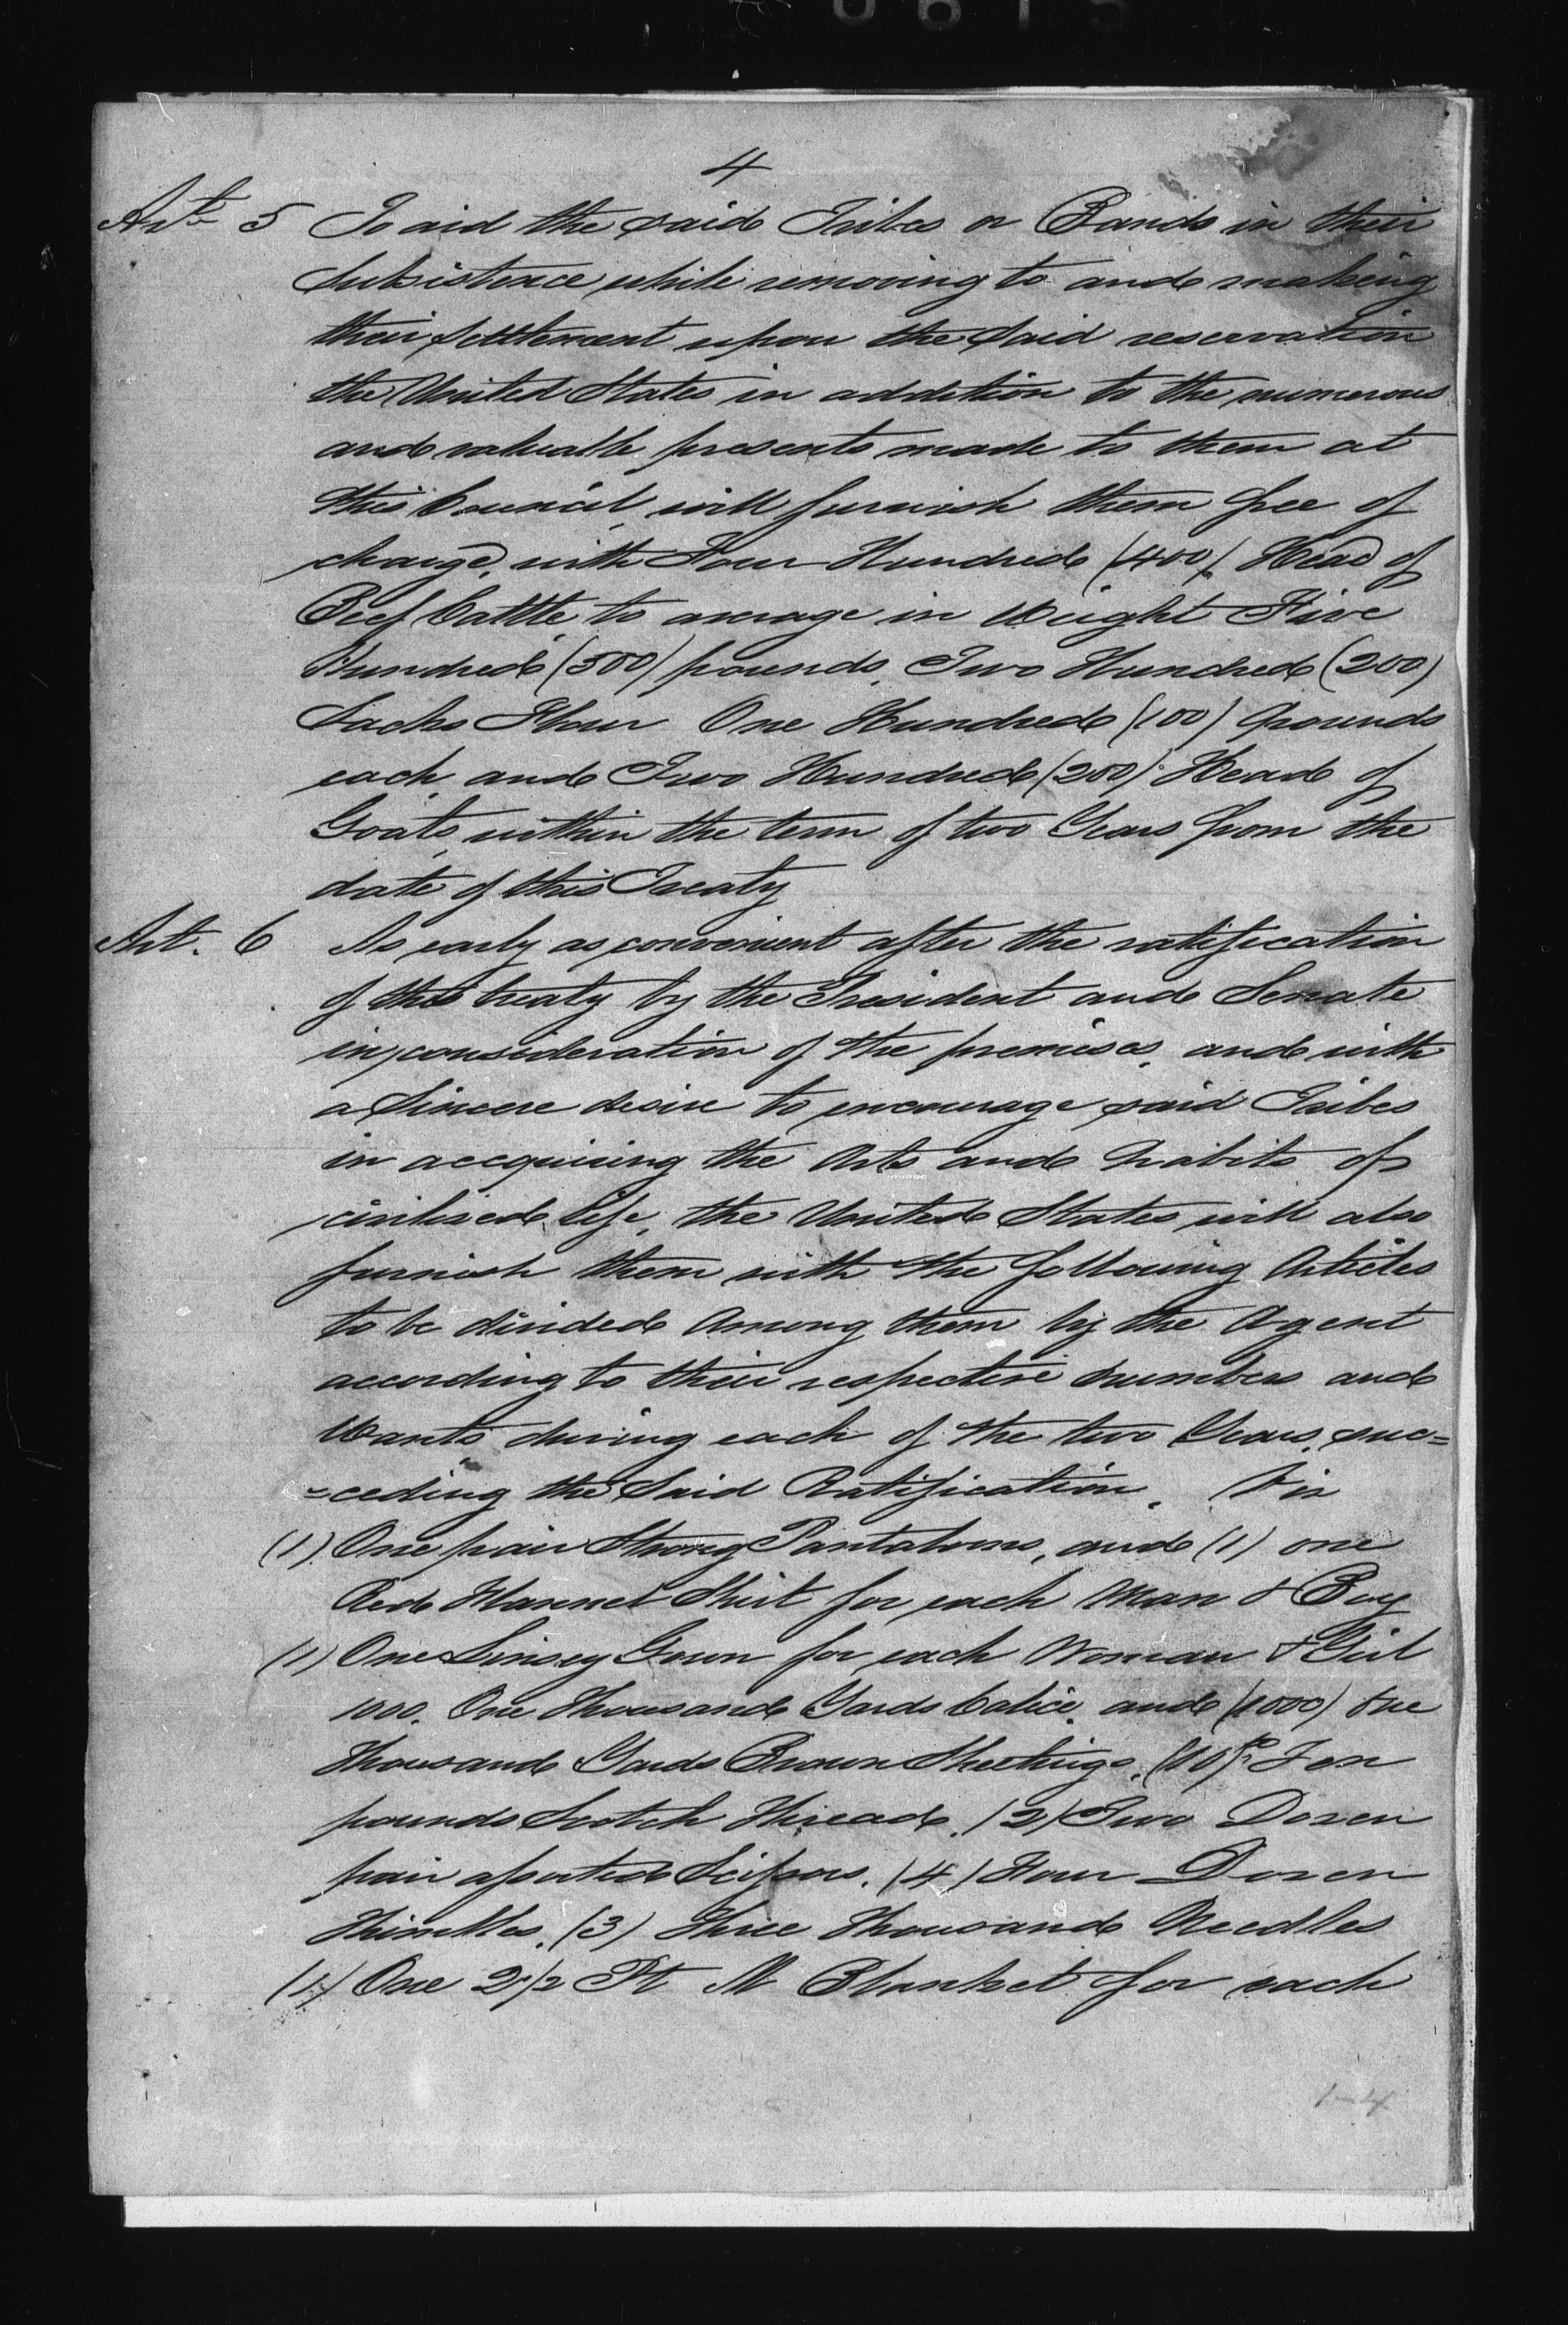 4
Art. 5 To aid the said Tribes or Bands in their
Subsistence while removing to and making
their Settlement upon the Said reservation
the United States in addition to the numerous
and valuable presents made to them at
this Council will furnish them free of
charge, with Four Hundred (400) Head of
Beef Cattle to average in Weight Five
Hundred (500) pounds, Two Hundred (200)
Sacks Flour One Hundred (100) pounds
each, and Two Hundred (200) Head of
Goats, within the term of two Years from the
date of this Treaty
Art. 6 As early as convenient after the ratification
of this treaty by the President and Senate
in consideration of the premises, and with
a Sincere desire to encourage said Tribes
in accquiring the Arts and habits of
civilized life, the United States will also
furnish them with the following Articles
to be divided Among them by the Agent
according to their respective numbers and
Wants during each of the two Years, suc=
=ceeding the Said Ratification. Viz
(1) One pair Strong Pantaloons, and (1) one
Red Flannel Shirt for each Man & Boy
(1) One Linsey Gown for each Woman & Girl
1000. One thousand Yards Calico, and (1000) One
thousand Yards Brown Sheetings, (10) Ten
pounds Scotch thread, (2) Two Dozen
pair assorted Scissors, (4) Four Dozen
Thimbles, (3) Three thousand Needles
(1) One 2 1/2 Pt M Blanket for each
1-4